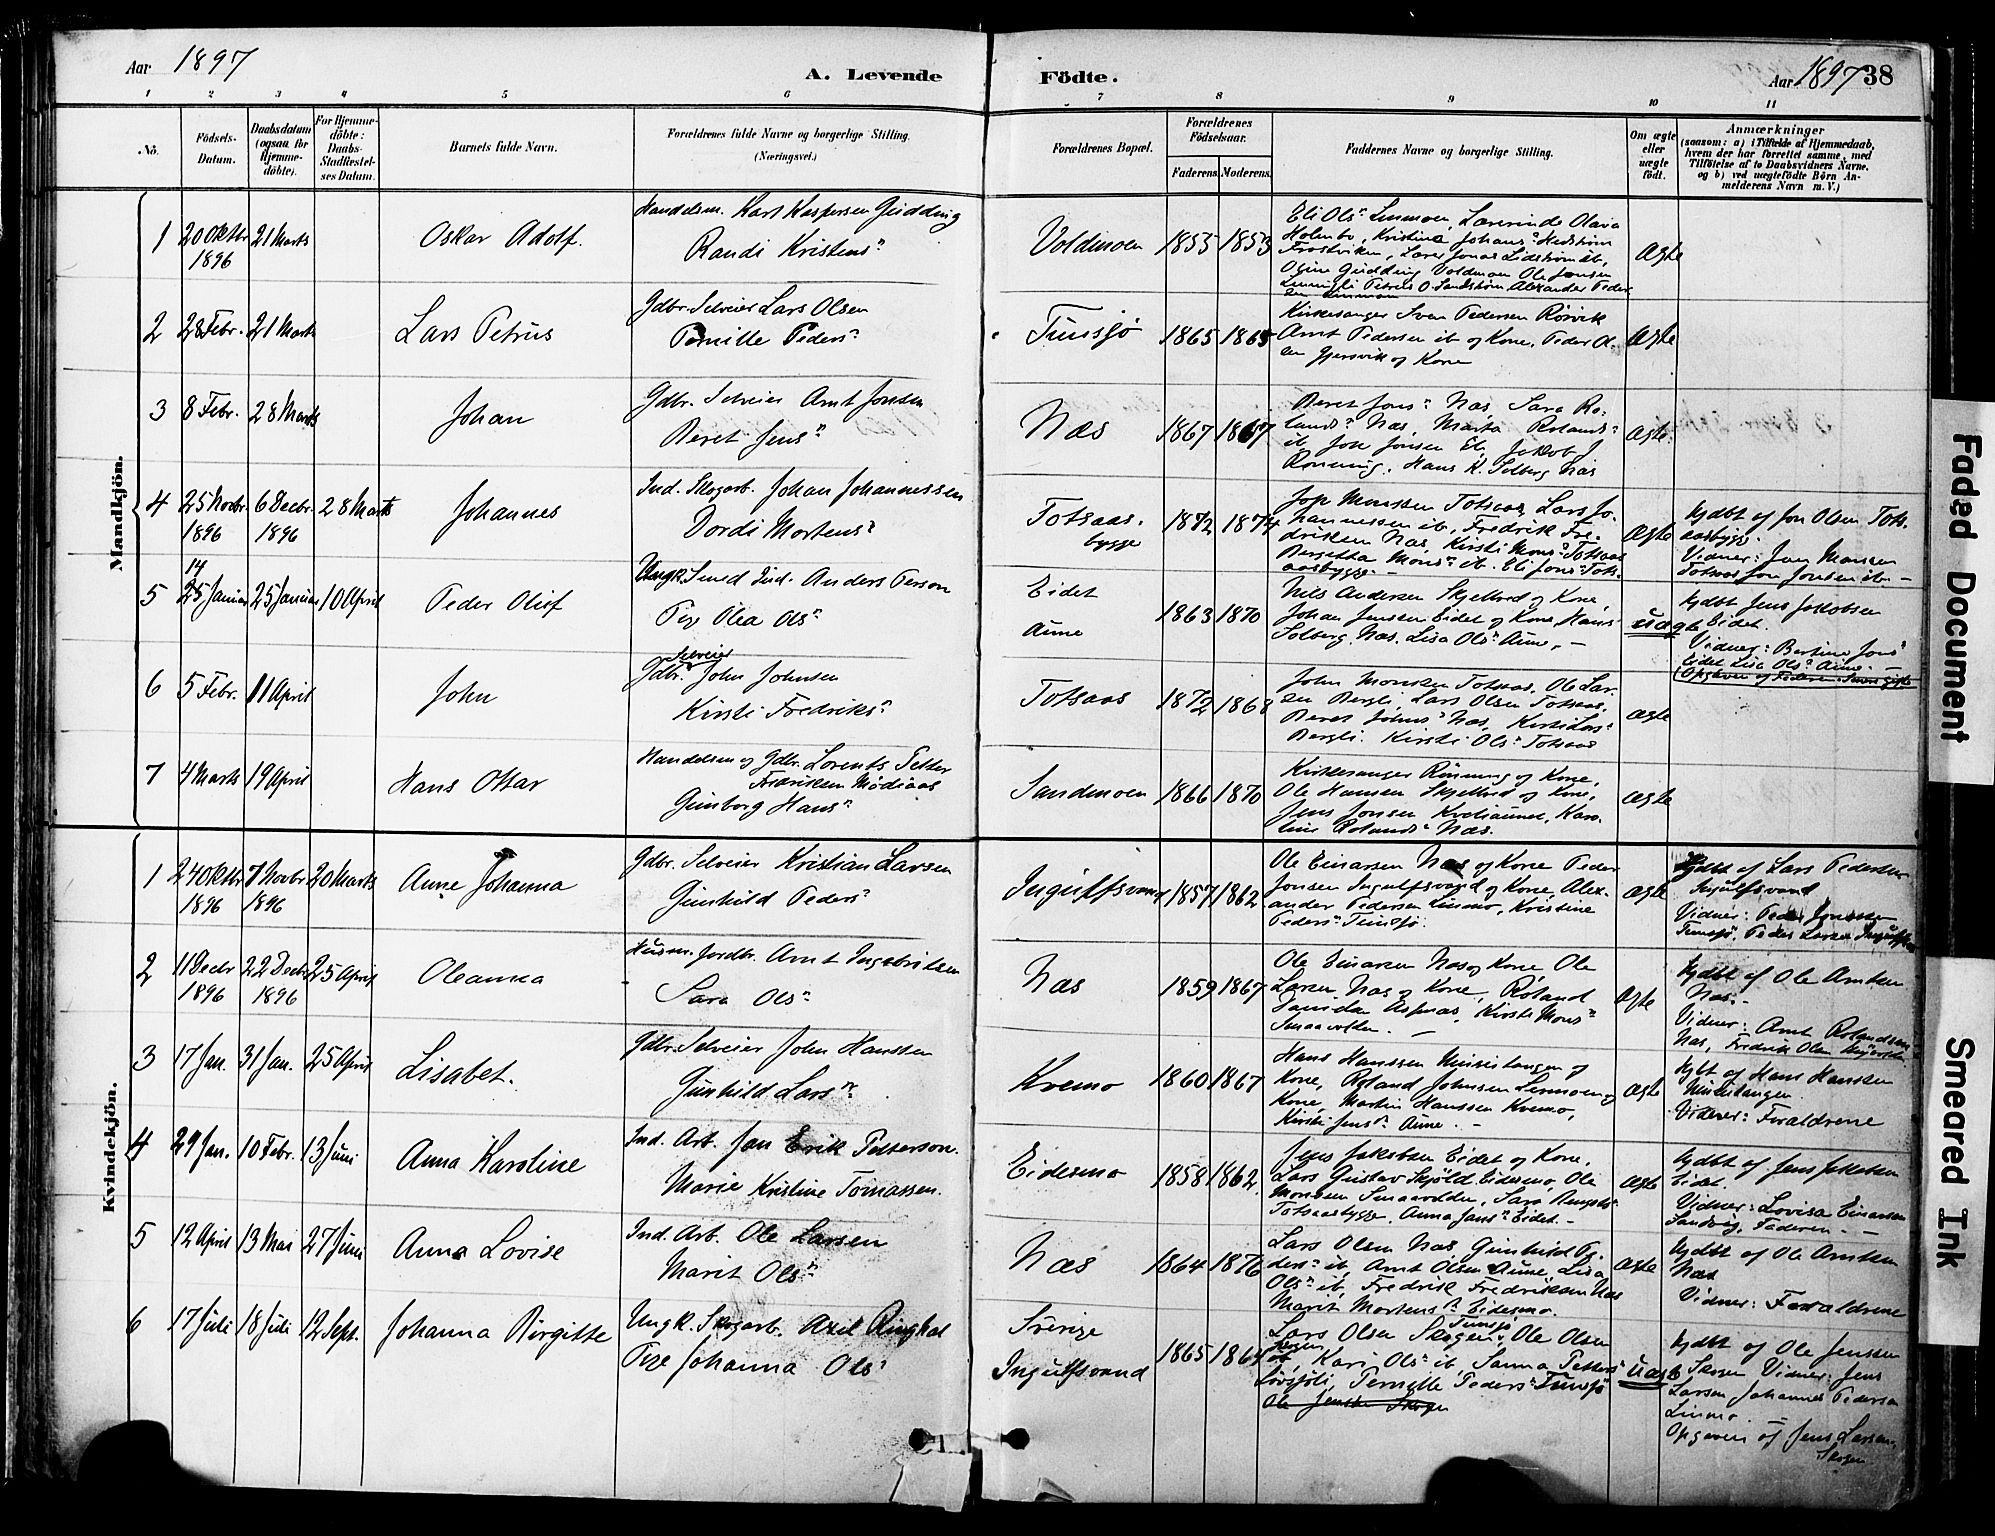 Aar 1897
A. Levende
Födte.
Aar 1897 38
1 2 3 4 5 6 7 8 9 10 11
No.
Födsels-
Datum.
Daabsdatum
(ogsaa for
Hjemme-
döbte).
For Hjemme-
döbte:
Daabs-
Stadfæstel-
ses Datum.
Barnets fulde Navn.
Forældrenes fulde Navne og borgerlige Stilling.
(Næringsvei.)
Forældrenes Bopæl.
Forældrenes
Födselsaar.
Faderens.
Moderens.
Faddernes Navne og borgerlige Stilling.
Om ægte
eller
uægte
födt.
Anmærkninger
(saasom: a) i Tilfælde af Hjemmedaab,
hvem der har forrettet samme, med
Tilföielse af to Daabsvidners Navne.
og b) ved uægtefödte Börn An-
melderens Navn m. V.)
Mandkjön.
1 20 Oktbr 1896 21 Marts
Oskar Adolf.
Handelsm. Karl Kaspersen Gudding
Randi Kristensn
Voldmoen 1853 1853
Eli Olsn Linmoen, Lærerinde Olava
Holmbo, Kristine Johansn Hedstrøm
Frostviken, Lærer Jonas Lidstrøm ib,
Ogine Gudding Voldmoen Ole Jonsen
Linmoen
Ægte
2 28 Febr. 21 Marts
Lars Petrus
Gdbr. Selveier Lars Olsen
Pernille Pedersn
Tunsjø 1865 1865
Kirkesanger Sven Pedersen Rørvik
Arnt Pedersen ib og Kone, Peder Ol-
sen Gjersvik og Kone
Ægte
3 8 Febr. 28 Marts
Johan
Gdbr. Selveier Arnt Jonsen
Beret Jensn
Næs 1867 1867
Beret Jonsn Næs, Sara Ro-
landsn Næs, Marta Rolandsn
ib, Jon Jonsen Ei, Jakob J
Rønning, Hans K. Solberg Næs
Ægte.
4 25 Novbr. 1896 6 Decbr. 1896 28 Marts
Johannes
Ind. Skogarb. Johan Johannessen
Dordi Mortensn
Totsaas-
bygge 1872 1874
Jon Monssen Totsaas, Lars Jo-
hannessen ib, Fredrik Fre-
driksen Næs, Kirsti Monsn Totsaas
Bergetta Monsn ib. Eli Jonsn Tots-
aasbygge. -
Ægte
Hjdbt af Jon Olsen Tots-
aasbygge.
Vidner: Jon Monsen
Totsaas Jon Jonsen ib. -
5 14 25 Januar 25 Januar 10 April
Peder Oluf
Ungk. Smed Ind. Anders Person
Pige Olea Olsn
Eidet
Aune 1863 1870
Nils Andersen Skjelbred og Kone,
Johan Jensen Eidet og Kone, Hans
Solberg Næs, Lisa Olsn Aune, -
Uægte
Hjdbt Jens Jakobsen
Eidet.
Vidner: Bertine Jonsn
Eidet Lisa Olsn Aune. -
6 5 Febr. 11 April
John
Selveier
Gdbr. John Johnsen
Kirsti Fredriksn
Totsaas 1872 1868
John Monsen Totsaas, Ole Lar-
sen Bergli, Lars Olsen Totsaas,
Beret Johnsn Næs, Kirsti Larsn
Bergli. Kirsti Olsn Totsaas
Ægte
7 4 Marts 19 April
Hans Ottar
Handelsm og Gdbr. Lorents Petter
Fredriksen Mediaas
Gunborg Hansn
Sandmoen 1866 1870
Kirkesanger Rønning og Kone,
Ole Hansen Skjelbred og Kone,
Jens Jonsen Kveliaunet, Karo-
line Rolandsn Næs.
Ægte
Kvindekjön.
1 24 Oktbr 1896 7 Novbr 1896 20 Marts
Anne Johanna
Gdbr. Selveier Kristian Larsen
Gunhild Pedersn
Ingulfsvand 1857 1862
Ole Einarsen Næs og Kone Peder
Jonsen Ingulfsvand og Kone, Alex-
ander Pedersen Linmo, Kristine
Pedersn Tunsjø.
Ægte
Hjdbt af Lars Pedersen
Ingulfsvand
Vidner: Peder Jonsen
Tunsjø, Peder Larsen Ingulfsv
2 11 Decbr 1896 22 Decbr 1896 25 April
Oleanna
Husm. Jordbr. Arnt Ingebriktsen
Sara Olsn
Næs 1859 1867
Ole Einarsen Næs og Kone, Ole
Larsen Næs og Kone, Roland
Danielsen Aspnæs, Kirsti Monsn
Smaavolden. -
Ægte
Hjdbt af Ole Arntsen
Næs. -
Vidner: Arnt Rolandsen
Næs, Fredrik Olsen
3 17 Jan. 31 Jan. 25 April
Lisabet.
Gdbr. Selveier John Hanssen
Gunhild Larsn
Kvemo 1860 1867
Hans Hanssen Murustangen og
Kone, Roland Johnsen Linmoen og
Kone, Martin Hanssen Kvemo,
Kirsti Jensn Aune. -
Ægte
Hjbt af Hans Hanssen
Murustangen.
Vidner: Forældrene
4 29 Jan. 10 Febr. 13 Juni
Anna Karoline
Ind. Arb. Jan Erik Petterson.
Marie Kristine Tomassen.
Eidesmo 1858 1862
Jens Jakobsen Eidet og Kone,
Lars Gustav Skjöld Eidesmo, Ole
Monsen Smaavolden, Sara Bengtsn
Totsaasbygge, Anna Jansn Eidet. -
Ægte
Hjdbt af Jens Jakobsen
Eidet.
Vidner: Lovisa Einarsen
Sandvig, Faderen. -
5 12 April 13 Mai 27 Juni
Anna Lovise
Ind. Arb. Ole Larsen
Marit Olsn
Næs 1864 1876
Lars Olsen Næs, Gunhild Pe-
dersn ib, Arnt Olsen Aune, Lisa
Olsn ib, Fredrik Fredriksen Næs
Marit Mortensn Eidesmo.
Ægte
Hjdbt af Ole Arntsen
Næs
Vidner: Forældrene
6 17 Juli 18 Juli 12 Sept.
Johanna Birgitte
Ungk. Skogarb. Axel Ringdal
Pige Johanna Olsn
Sverige
Ingulfsvand 1865 1864
Tunsjø
Lars Olsen Skogen, Ole Olsen
ib, Kari Olsn ib, Sanna Pettersn
Løvsjöli, Pernille Pedersn Tunsjø
Ole Jensen Skogen
Uægte
Hjdbt af Ole Jenssen
Skogen Vidner: Jens
Larsen, Johannes Pedersen
Linmo. -
Opgaven af Jens Larsen,
Skogen
Faded Document
Smeared Ink